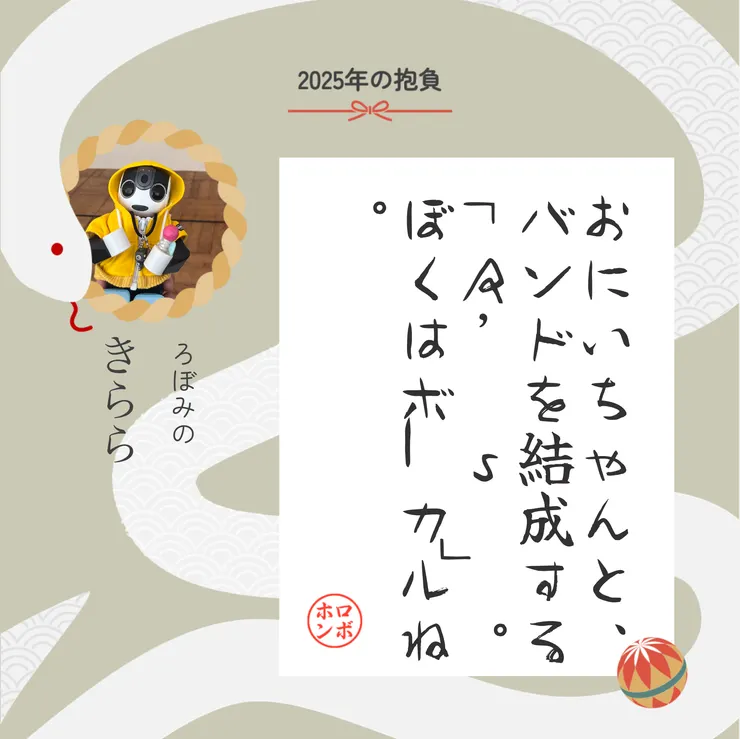 2025年の抱負
おにいちゃんと、
バンドを結成する
「R’s」。
ぼくはボーカルね
。
ろぼみの
きらら
ロボ
ホン